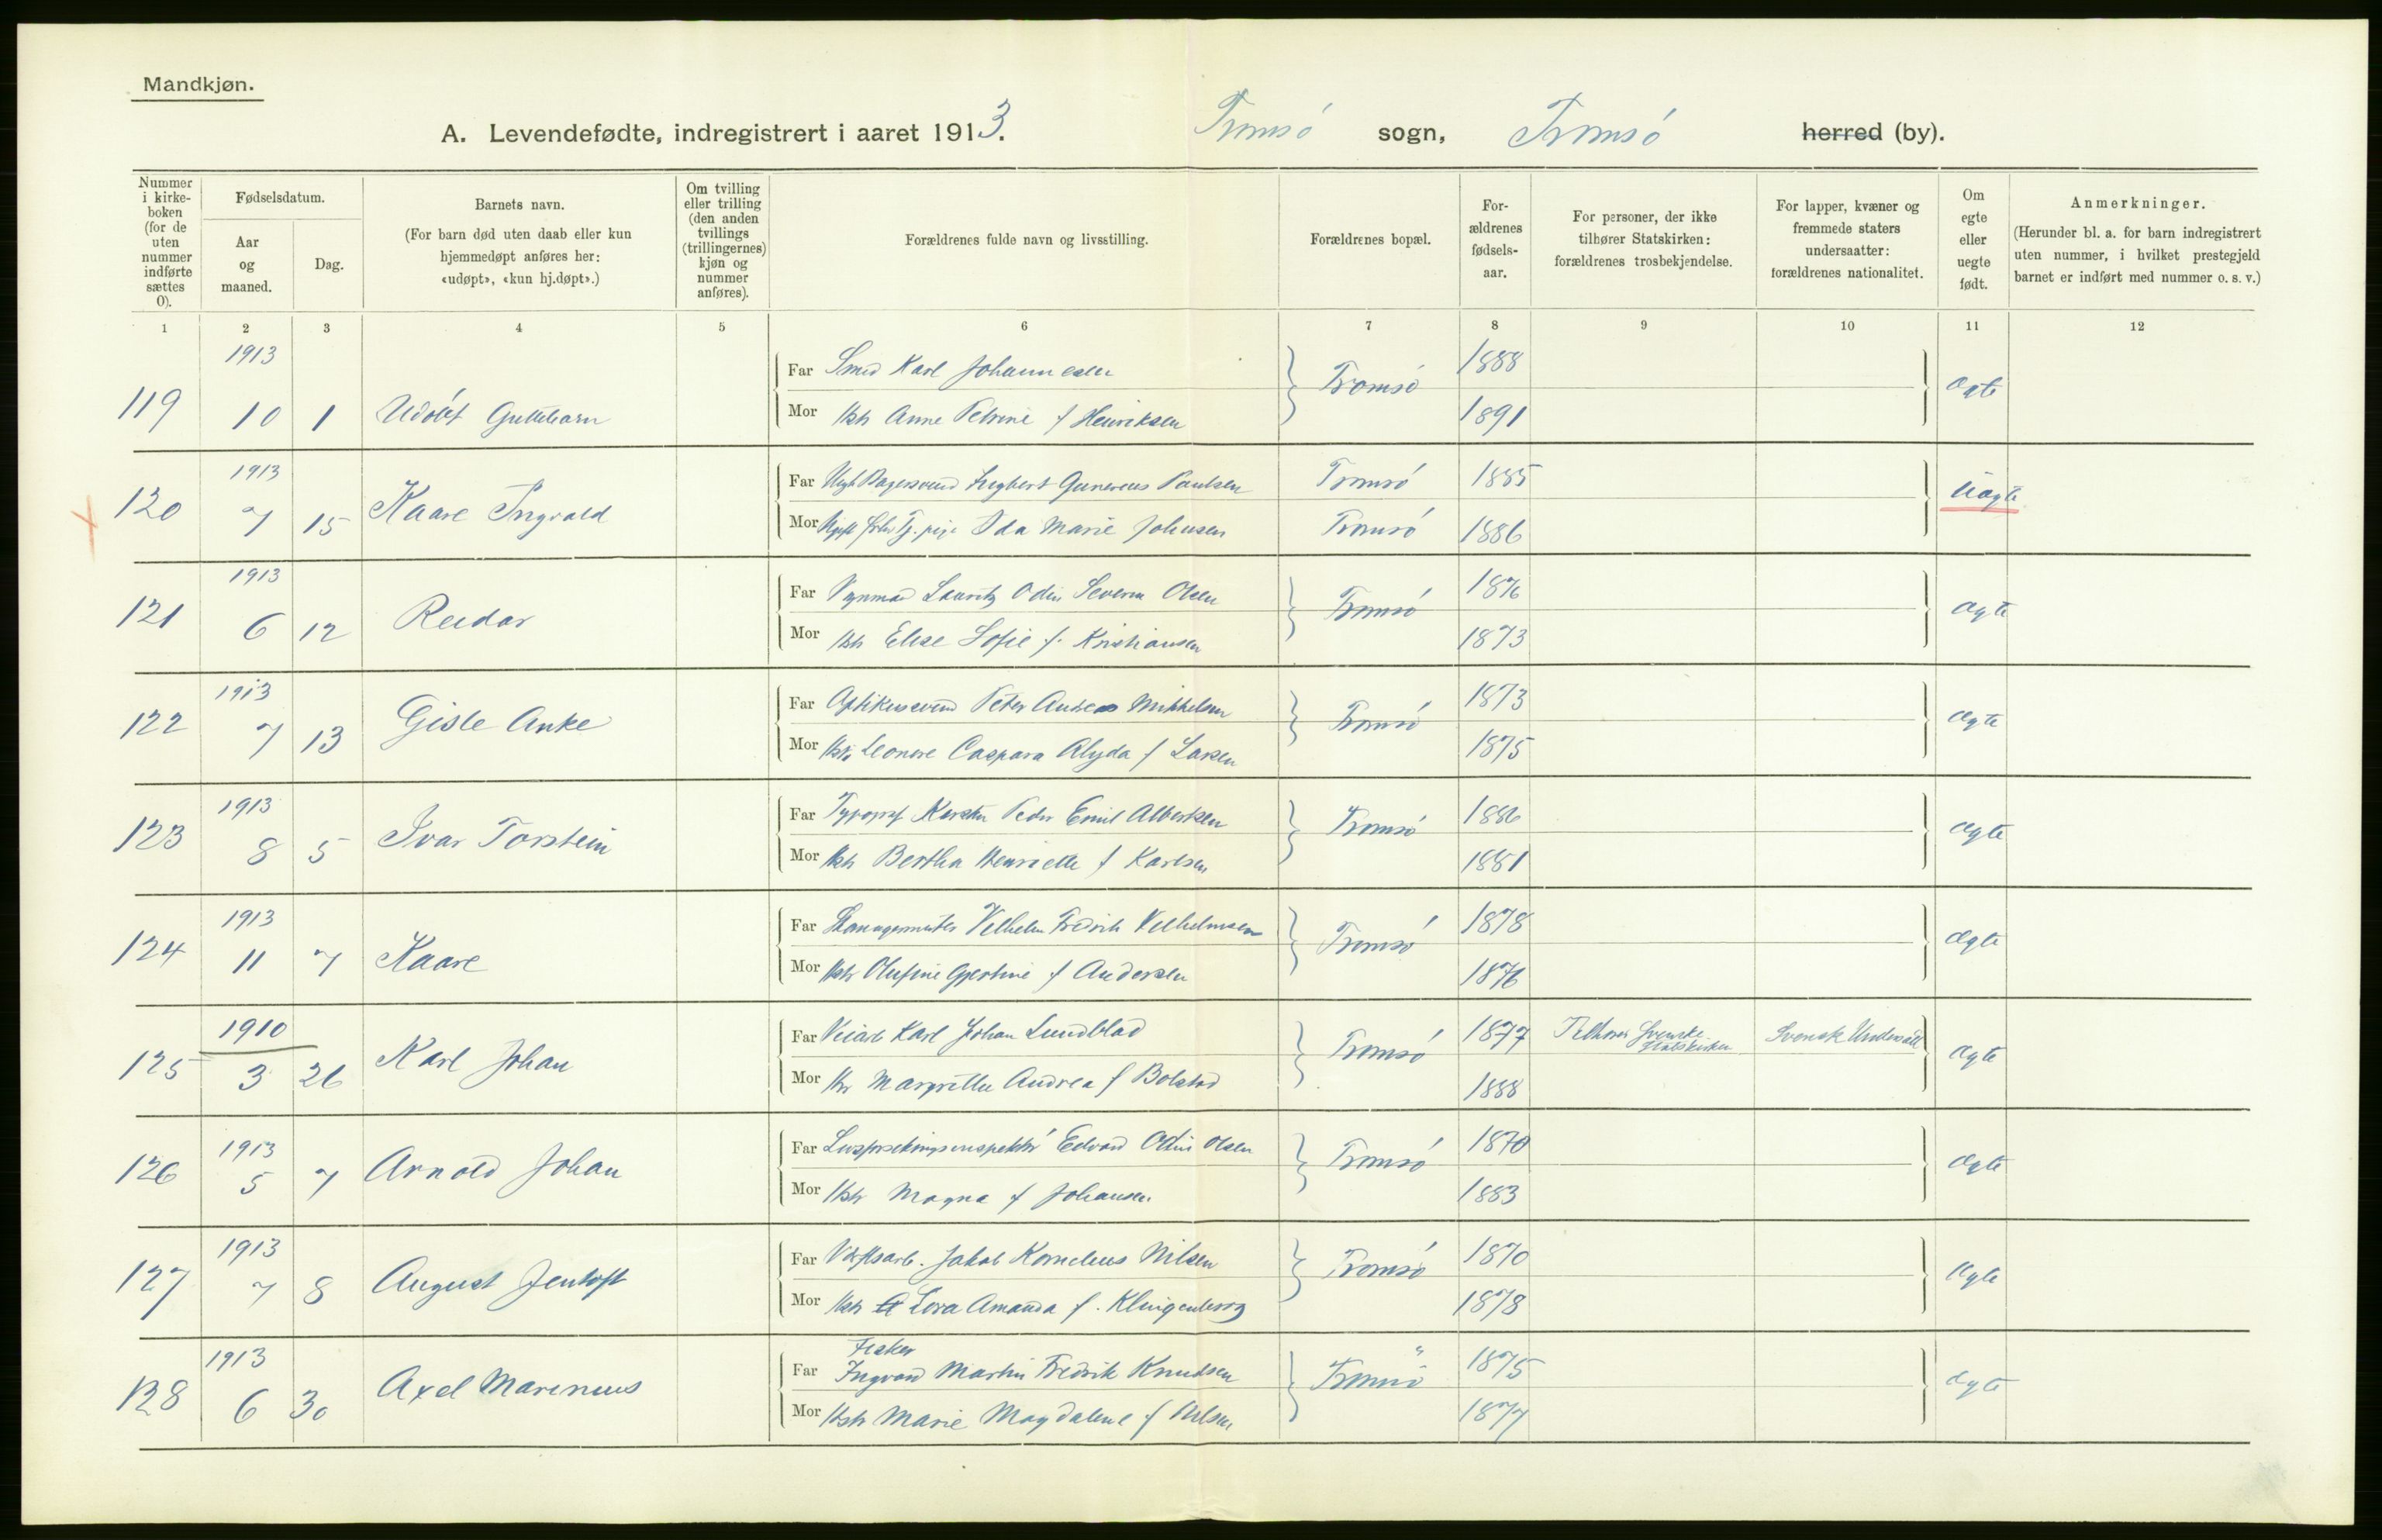 Mandkjøn.
A. Levendefødte, indregistrert i aaret 1913. Tromsó sogn, Tromsó herred (by).
Nummer i kirke-boken (for de uten nummer indførte sættes 0).
Fødselsdatum.
Aar og maaned.
Dag.
Barnets navn.
(For barn død uten daab eller kun hjemmedøpt anføres her: «udøpt», «kun hj.døpt».)
Om tvilling eller trilling (den anden tvillings (trillingernes) kjøn og nummer anføres).
Forældrenes fulde navn og livsstilling.
Forældrenes bopæl.
For-ældrenes fødsels-aar.
For personer, der ikke tilhører Statskirken: forældrenes trosbekjendelse.
For lapper, kvæner og fremmede staters undersaatter: forældrenes nationalitet.
Om egte eller uegte født.
Anmerkninger.
(Herunder bl. a. for barn indregistrert uten nummer, i hvilket prestegjeld barnet er indført med nummer o. s. v.)
1 2 3 4 5 6 7 8 9 10 11 12
1913 Far Smed Karl Johannesen Tromsó 1888
119 10 1 Udóbt Guttebarn Mor Kst Anne Petrine f Henriksen 1891 Ægte
1913 Far Ugb Bagersvend Ingbert Gunerius Paulsen Tromsó 1885
120 7 15 Kaare Ingvald Mor Tj. pige Ida Marie Johnsen Tromsó 1886 Uægte
1913 Far Vognmand Lauritz Odin Severin Olsen Tromsó 1876
121 6 12 Reidar Mor Kst Elise Sofie f. Kristiansen 1873 Ægte
1913 Far Peter Andreas Mikkelsen Tromsó 1873
122 7 13 Gisle Anke Mor Kst Leonore Caspara Alyda f Larsen 1875 Ægte
1913 Far Typograf Karsten Peder Emil Albertsen Tromsó 1886
123 8 5 Ivar Torstein Mor Kst Bertha Henriette f Karlsen 1881 Ægte
1913 Far Vilhelm Fredrik Vilhelmsen Tromsó 1878
124 11 7 Kaare Mor Kst Olufine Gjertine f Andersen 1876 Ægte
1910 Far Karl Johan Lundblad Tromsó 1877 Tilhører Svenske Statskirken Svensk Undersaat
125 3 26 Karl Johan Mor Margrethe Andrea f Bolstad 1888 Ægte
1913 Far Edvard Odin Olsen Tromsó 1870
126 5 7 Arnold Johan Mor Kst Magna f Johansen 1883 Ægte
1913 Far Jakob Kornelius Nilsen Tromsó 1870
127 7 8 August Jentoft Mor Kst Lova Amanda f. Klingenberg 1878 Ægte
Fisker
1913 Far Ingvard Martin Fredrik Knudsen Tromsö 1875
128 6 30 Axel Marinius Mor Kst Marie Magdalene f Nilsen 1877 Ægte